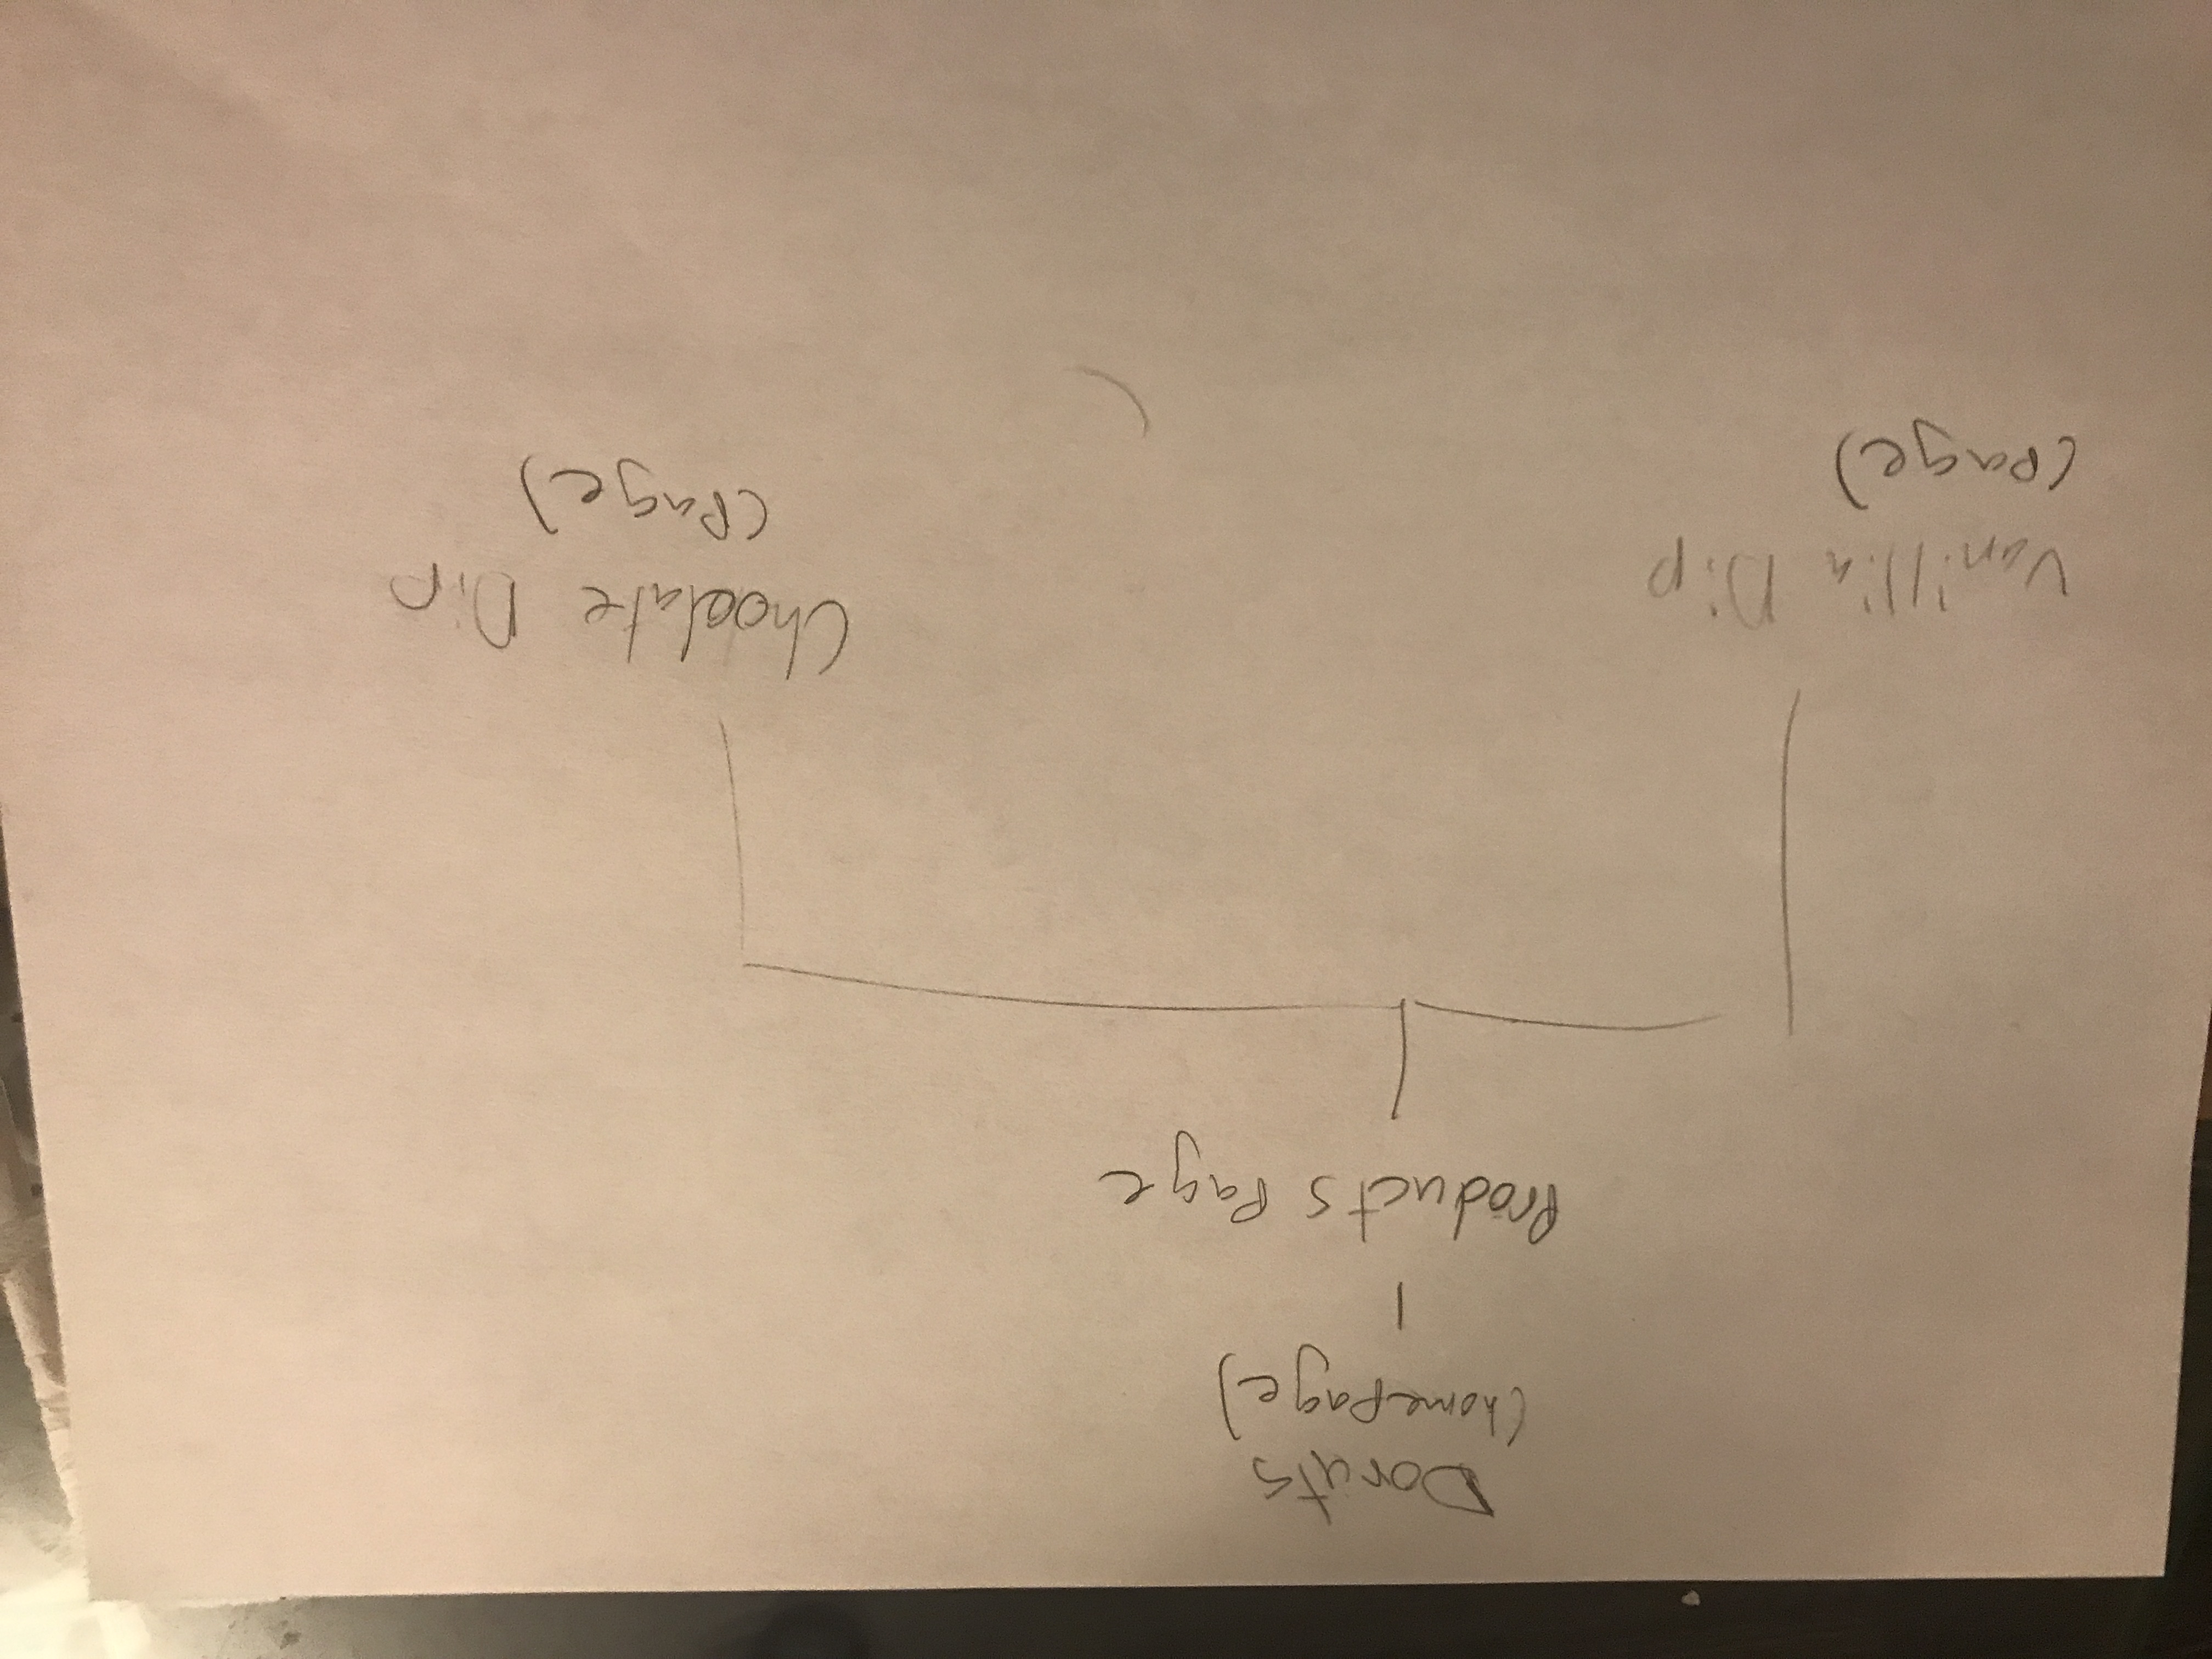 Donuts
(homepage)
Products Page
Vanillia Dip
(page)
Chocolate Dip
(page)